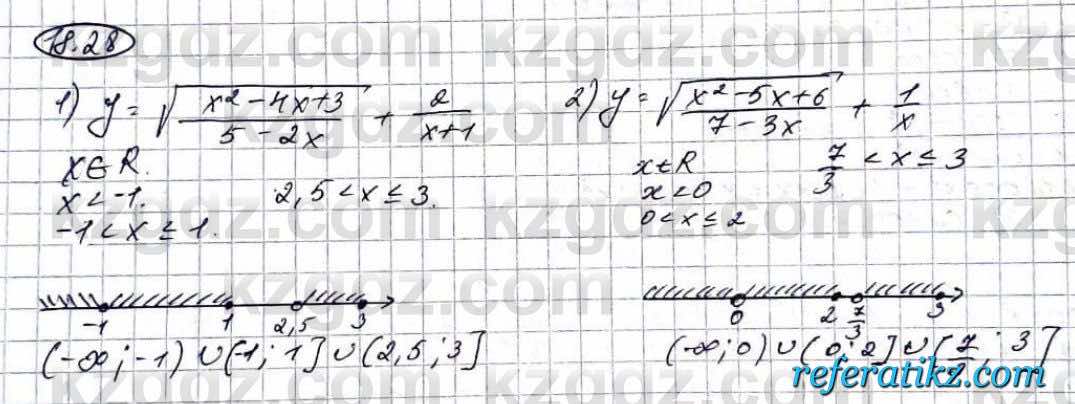 18.28
1) y = √((x² - 4x + 3)/(5 - 2x)) + 2/(x+1)
x ∈ R.
x < -1.
-1 < x ≤ 1.
2,5 < x ≤ 3.
-1 1 2,5 3
(-∞; -1) ∪ (-1; 1] ∪ (2,5; 3]
2) y = √((x² - 5x + 6)/(7 - 3x)) + 1/x
x ∈ R
x < 0
0 < x ≤ 2
7/3 < x ≤ 3
0 2 7/3 3
(-∞; 0) ∪ (0; 2] ∪ (7/; 3]
referatikz.com
kzgdz.com